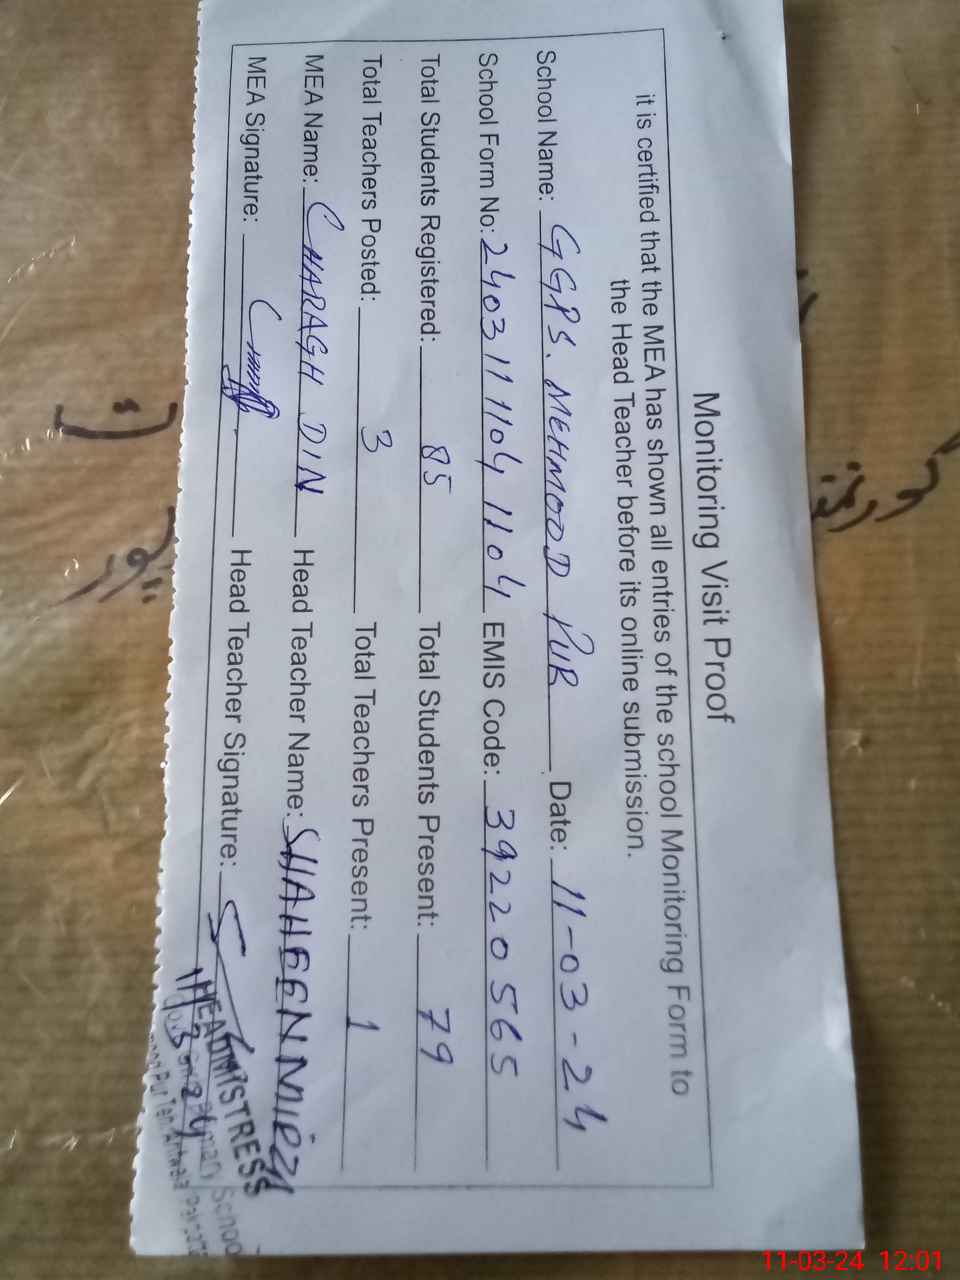 Monitoring Visit Proof
it is certified that the MEA has shown all entries of the school Monitoring Form to
the Head Teacher before its online submission.
School Name: GGPS. MEHMOOD PUR Date: 11-03-24
School Form No: 2403111104 1104 EMIS Code: 39220565
Total Students Registered: 85 Total Students Present: 79
Total Teachers Posted: 3 Total Teachers Present: 1
MEA Name: CHARAGH DIN Head Teacher Name: SHAHEEN MIRZA
MEA Signature: Head Teacher Signature:
HEADMISTRESS
School
11-03-24 12:01